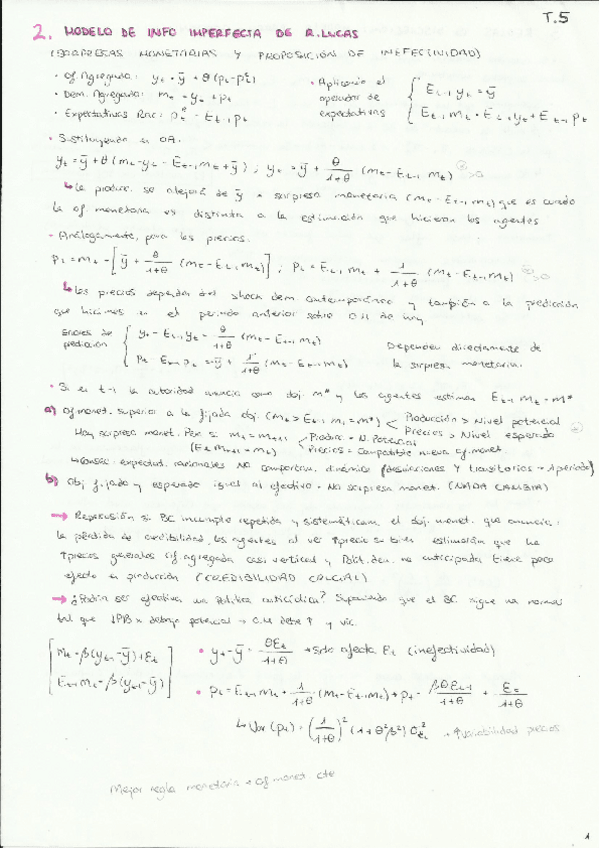 T.5
2. MODELO DE INFO IMPERFECTA DE R. LUCAS
(SORPRESAS MONETARIAS Y PROPOSICIÓN DE INEFECTIVIDAD)
· Of. Agregada: yₜ = ȳ + θ (pₜ - pₜᵉ)
· Dem. Agregada: mₜ = yₜ + pₜ
· Expectativas Rac: pₜᵉ = Eₜ₋₁ pₜ
· Aplicando el operador de expectativas { Eₜ₋₁ yₜ = ȳ
Eₜ₋₁ mₜ = Eₜ₋₁ yₜ + Eₜ₋₁ pₜ
· Sustituyendo en OA:
yₜ = ȳ + θ (mₜ - yₜ - Eₜ₋₁ mₜ + ȳ) ; yₜ = ȳ + θ/(1+θ) (mₜ - Eₜ₋₁ mₜ) >0
↳ La producc. se alejará de ȳ x sorpresa monetaria (mₜ - Eₜ₋₁ mₜ) que es cuando
la of. monetaria es distinta a la estimación que hicieron los agentes
- Análogamente, para los precios:
pₜ = mₜ - [ȳ + θ/(1+θ) (mₜ - Eₜ₋₁ mₜ)] ; pₜ = Eₜ₋₁ mₜ + 1/(1+θ) (mₜ - Eₜ₋₁ mₜ) >0
↳ Los precios dependen del shock dem contemporáneo y también a la predicción
que hicimos en el periodo anterior sobre
Errores de predicción { yₜ - Eₜ₋₁ yₜ = θ/(1+θ) (mₜ - Eₜ₋₁ mₜ)
pₜ - Eₜ₋₁ pₜ = ȳ + 1/(1+θ) (mₜ - Eₜ₋₁ mₜ)
Dependen directamente de
la sorpresa monetaria.
· Si en t-1 la autoridad anuncia como obj. m* y los agentes estiman Eₜ₋₁ mₜ = m*
a) Of monet. superior a la fijada obj. (mₜ > Eₜ₋₁ mₜ = m*) < Producción > Nivel potencial
Precios > Nivel esperado
Hay sorpresa monet. Pero si mₜ = mₜ₊₁ < Producc. = N. Potencial
(Eₜ mₜ₊₁ = mₜ) Precios = Compatible nueva of. monet.
↳ expectat. racionales NO comportan dinámica (desviaciones y transitorios → 1 periodo)
b) Obj fijado y esperado igual al efectivo → No sorpresa monet. (NADA CAMBIA)
→ Repercusión si BC incumple repetida y sistemáticam. el obj. monet. que anuncia:
la pérdida de credibilidad, los agentes al ver ↑precio su bien estimarán que ha
↑precios generales (of agregada casi vertical y Polít. den. no anticipada tiene poco
efecto en producción (CREDIBILIDAD CRUCIAL)
→ ¿Podría ser efectiva una Política anticíclica? Suponiendo que el BC sigue una norma
tal que ↓PIB x debajo potencial → O.M debe ↑ y vic.
[ mₜ = -β(yₜ₋₁ - ȳ) + Eₜ
Eₜ₋₁ mₜ = -β(yₜ₋₁ - ȳ) ]
· yₜ - ȳ = θEₜ/(1+θ) → Solo afecta Eₜ (inefectividad)
· pₜ = Eₜ₋₁ mₜ + 1/(1+θ) · (mₜ - Eₜ₋₁ mₜ) → pₜ = - βθEₜ₋₁/(1+θ) + Eₜ/(1+θ)
↳ Var (pₜ) = (1/(1+θ))² (1 + θ²β²) σ²ₑₜ → ↑variabilidad precios
Mejor regla monetaria → of monet. cte
1